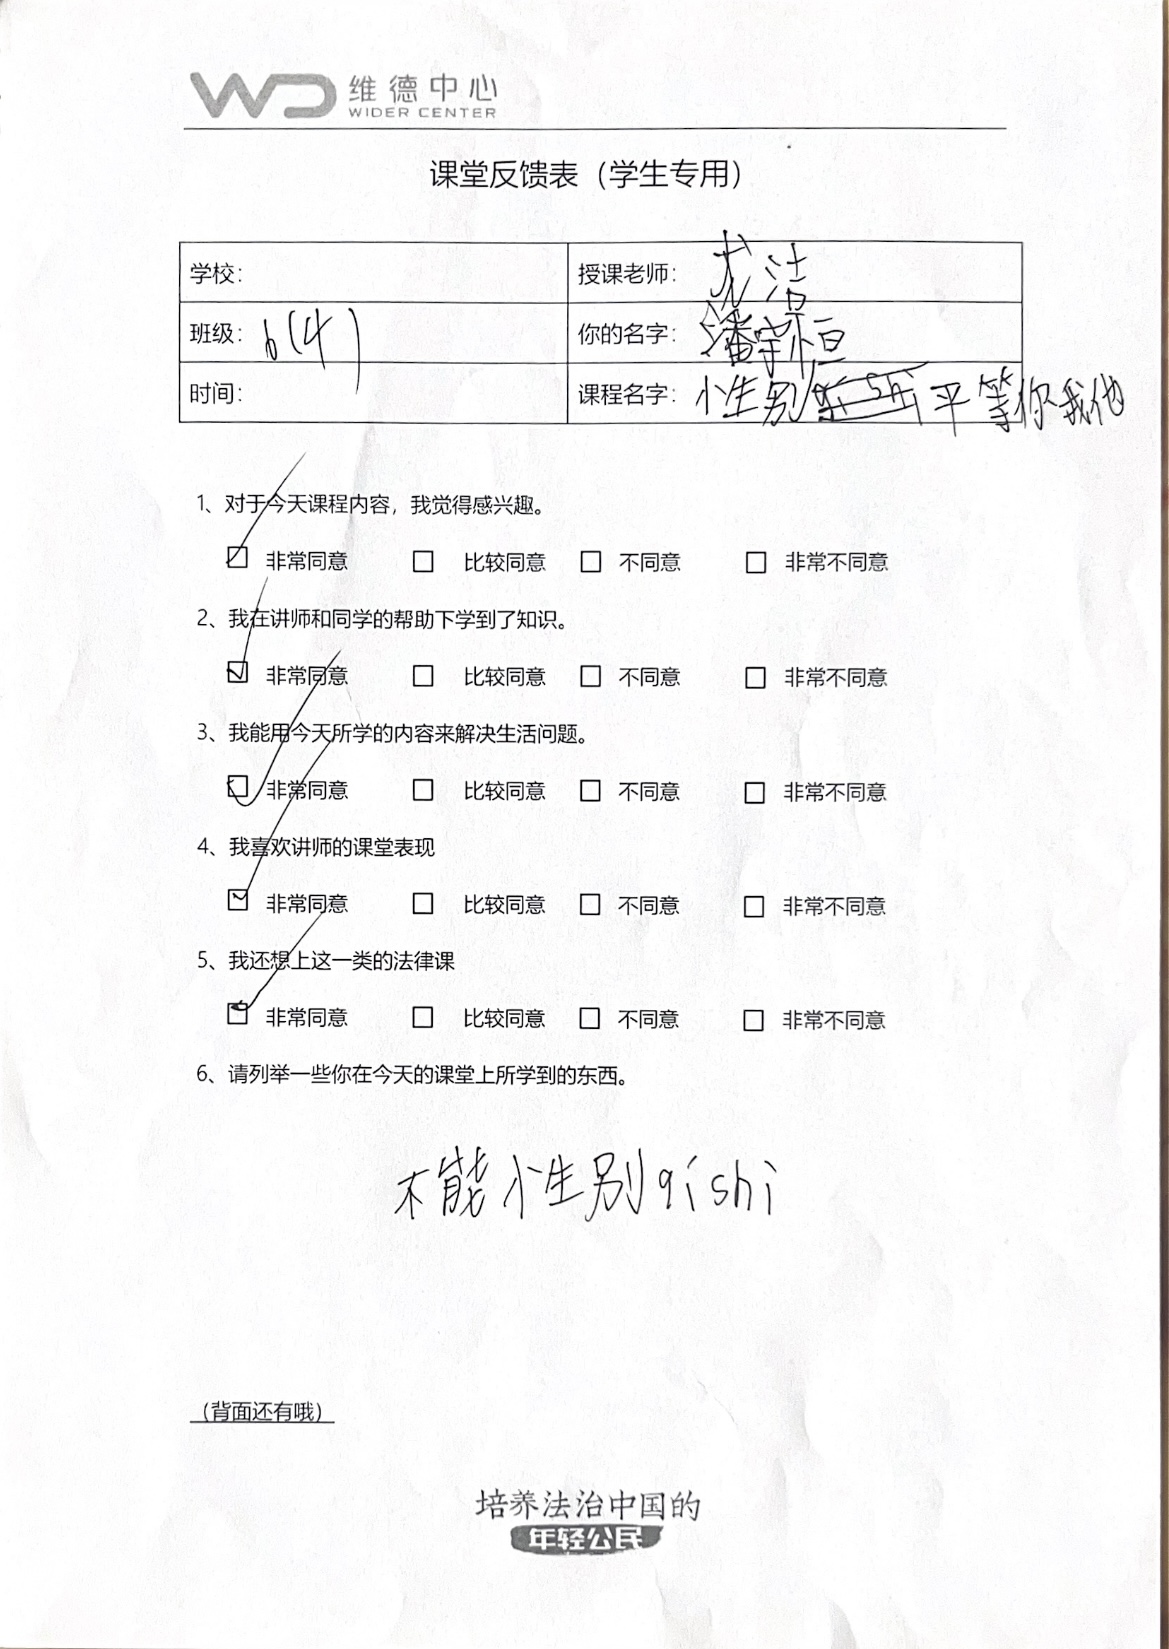 WD 维德中心
WIDER CENTER
课堂反馈表（学生专用）
学校： 授课老师：尤洁
班级：6(4) 你的名字：潘宇恒
时间： 课程名字：小性别qi shi平等你我他
1、对于今天课程内容，我觉得感兴趣。
☑ 非常同意 □ 比较同意 □ 不同意 □ 非常不同意
2、我在讲师和同学的帮助下学到了知识。
☑ 非常同意 □ 比较同意 □ 不同意 □ 非常不同意
3、我能用今天所学的内容来解决生活问题。
☑ 非常同意 □ 比较同意 □ 不同意 □ 非常不同意
4、我喜欢讲师的课堂表现
☑ 非常同意 □ 比较同意 □ 不同意 □ 非常不同意
5、我还想上这一类的法律课
☑ 非常同意 □ 比较同意 □ 不同意 □ 非常不同意
6、请列举一些你在今天的课堂上所学到的东西。
不能小性别qi shi
（背面还有哦）
培养法治中国的
年轻公民